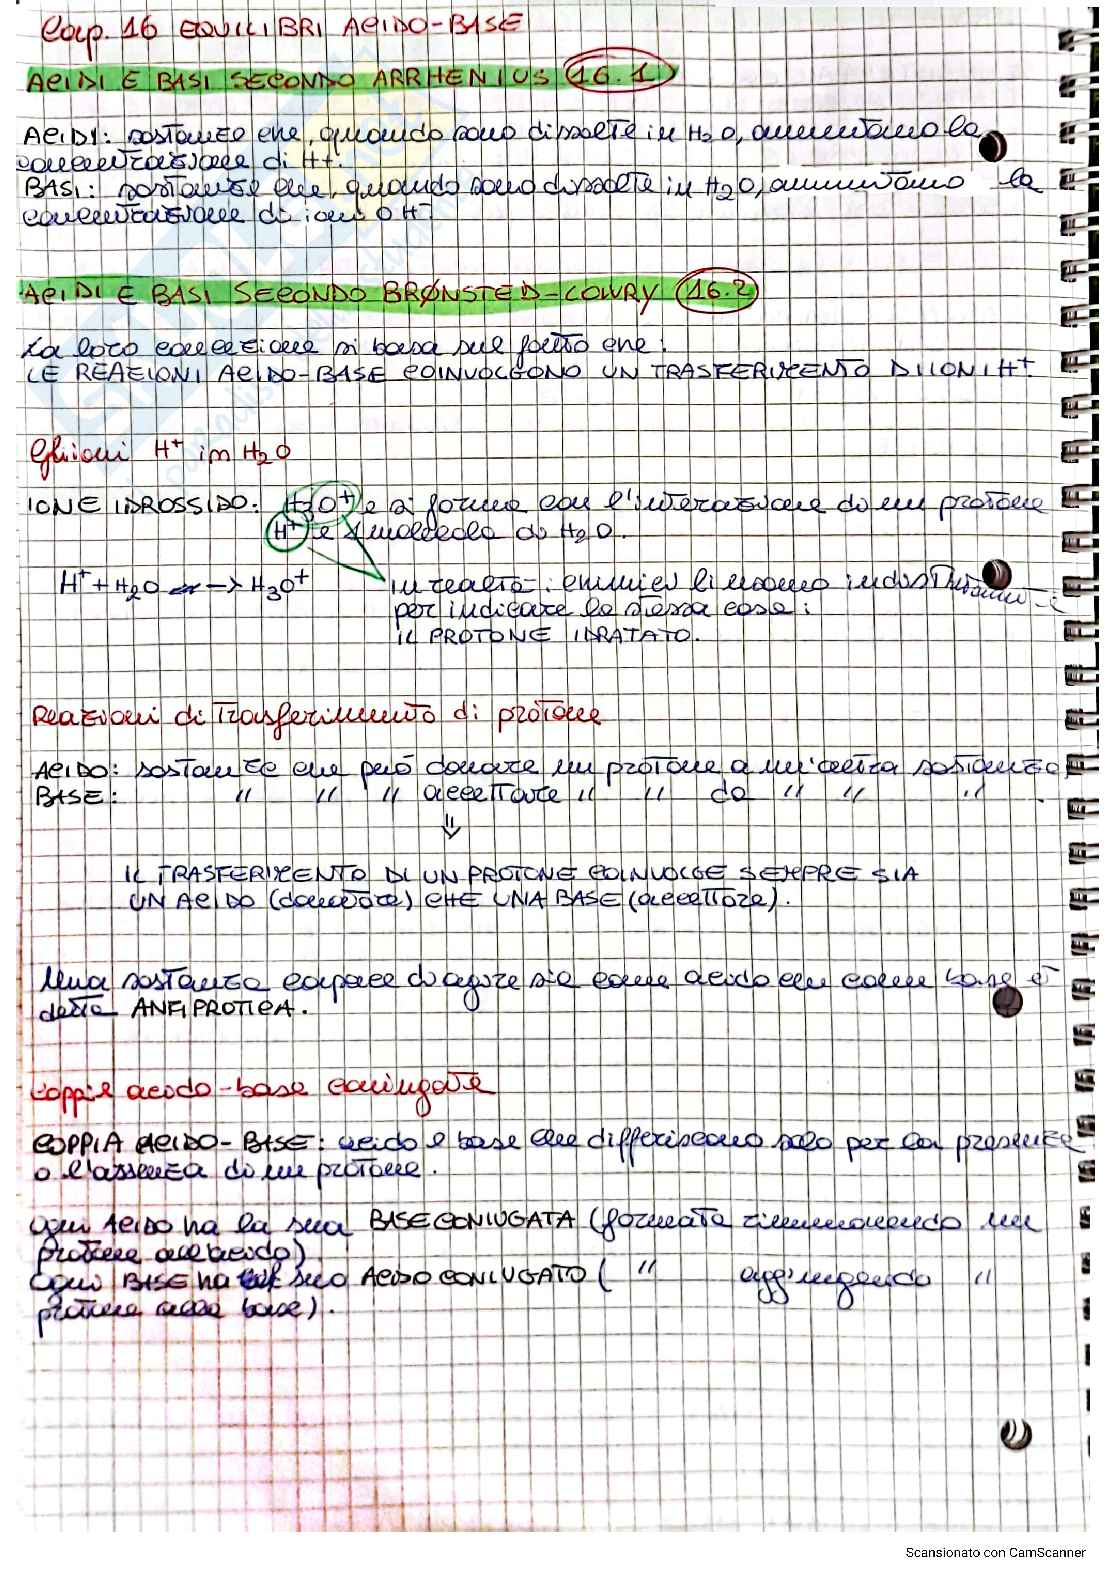 Cap. 16 EQUILIBRI ACIDO-BASE
ACIDI E BASI SECONDO ARRHENIUS 16.1
ACIDI: sostanze che, quando sono dissolte in H2O, aumentano la
concentrazione di H+.
BASI: sostanze che, quando sono dissolte in H2O, aumentano la
concentrazione di ioni OH-
ACIDI E BASI SECONDO BRØNSTED-LOWRY 16.2
La loro concezione si basa sul fatto che:
LE REAZIONI ACIDO-BASE COINVOLGONO UN TRASFERIMENTO DI IONI H+
Gli ioni H+ in H2O
IONE IDROSSIDO: H3O+ e si forma con l'interazione di un protone
H+ e 1 molecola di H2O.
H+ + H2O → H3O+
in realtà: chimici li usano
per indicare la stessa cosa:
IL PROTONE IDRATATO.
Reazioni di trasferimento di protone
ACIDO: sostanza che può donare un protone a un'altra sostanza
BASE: " " " accettare " " da " " "
⇓
IL TRASFERIMENTO DI UN PROTONE COINVOLGE SEMPRE SIA
UN ACIDO (donatore) CHE UNA BASE (accettore).
Una sostanza capace di agire sia come acido che come base è
detta ANFIPROTICA.
Coppie acido-base coniugate
COPPIA ACIDO-BASE: acido e base che differiscono solo per la presenza
o l'assenza di un protone.
Ogni ACIDO ha la sua BASE CONIUGATA (formata rimuovendo un
protone all'acido)
Ogni BASE ha il suo ACIDO CONIUGATO ( " aggiungendo "
protone alla base).
Scansionato con CamScanner